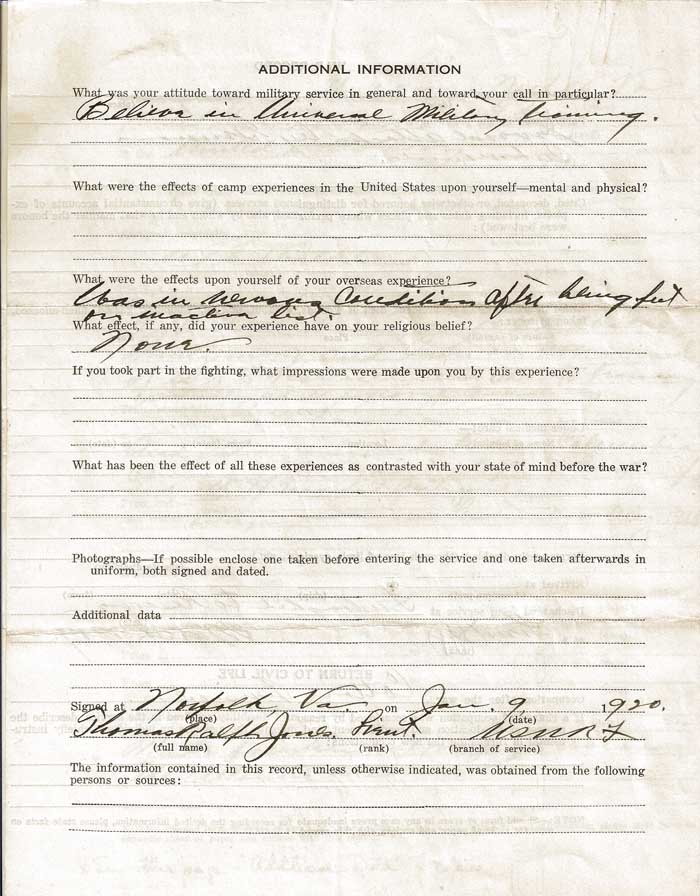 ADDITIONAL INFORMATION
What was your attitude toward military service in general and toward your call in particular?
Believe in Universal Military Training.
What were the effects of camp experiences in the United States upon yourself—mental and physical?
What were the effects upon yourself of your overseas experience?
Was in nervous condition after being put
on inactive list.
What effect, if any, did your experience have on your religious belief?
None.
If you took part in the fighting, what impressions were made upon you by this experience?
What has been the effect of all these experiences as contrasted with your state of mind before the war?
Photographs—If possible enclose one taken before entering the service and one taken afterwards in
uniform, both signed and dated.
Additional data
Signed at Norfolk, Va on Jan. 9 1920.
(place) (date)
Thomas Ralph Jones. Lieut. USNRF
(full name) (rank) (branch of service)
The information contained in this record, unless otherwise indicated, was obtained from the following
persons or sources: